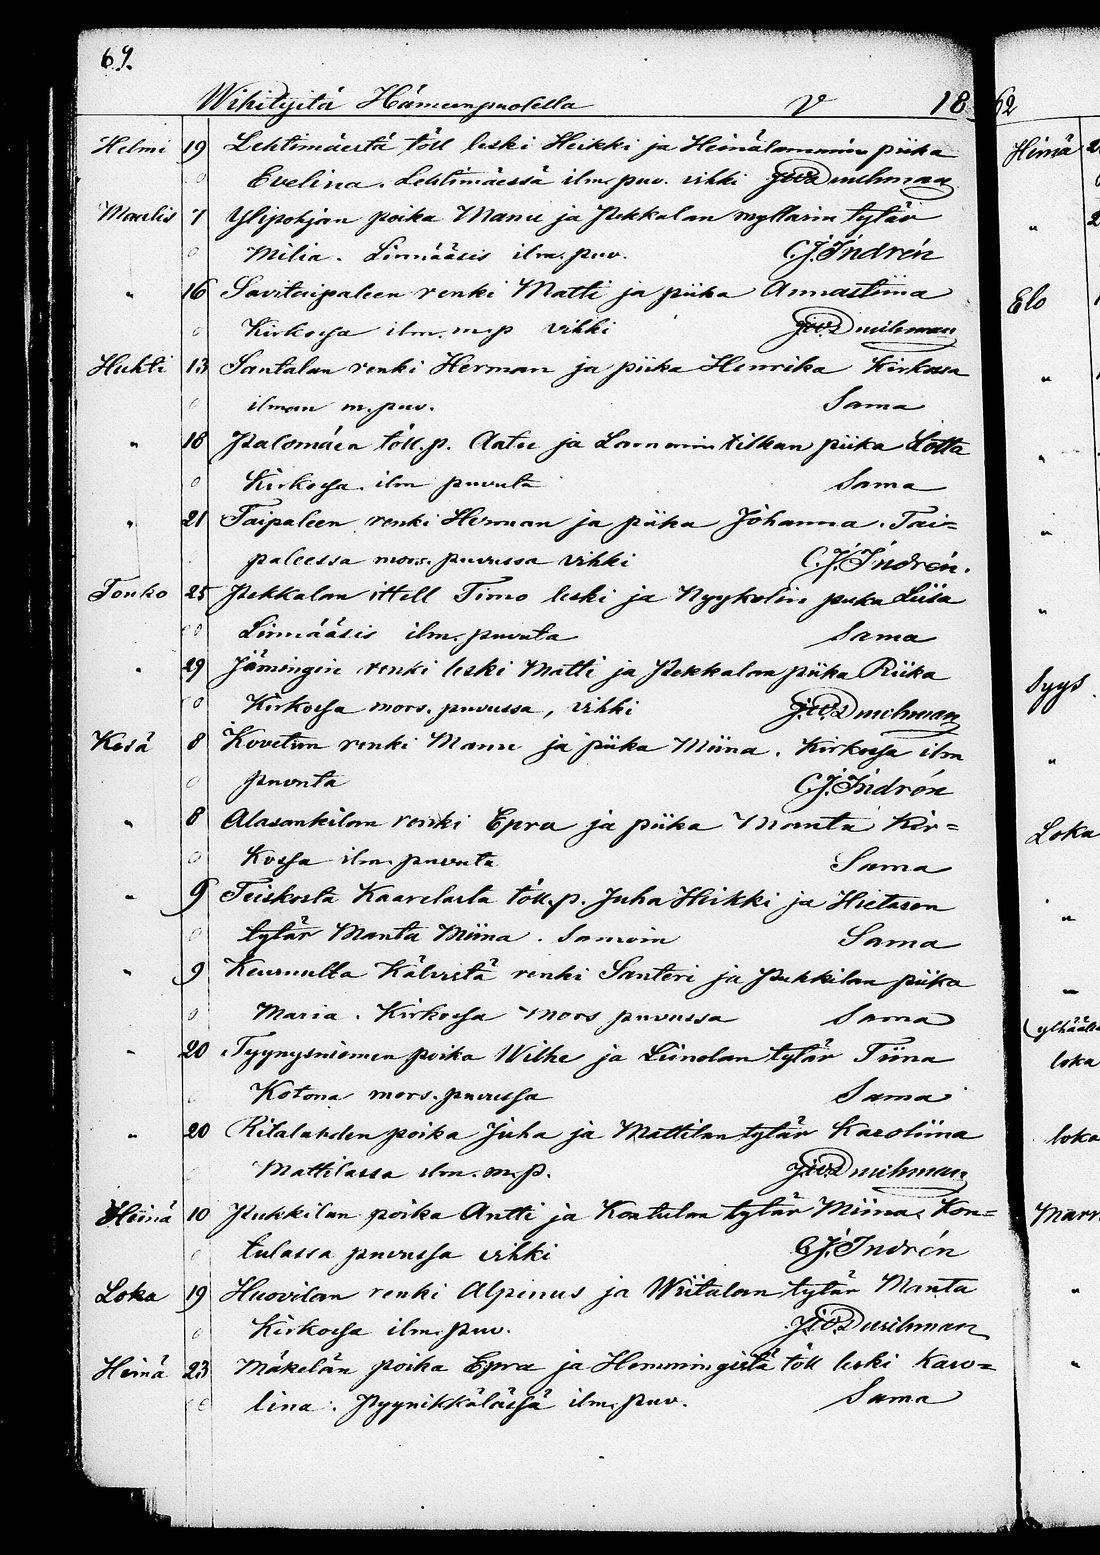 69.
Wihityitä Hämeenpuolella V 1862
Helmi 19 Lehtimäestä töll leski Heikki ja Heinälammin piika
Evelina. Lehtimäessä ilm. puv. vihki
Maalis 7 Ylipohjan poika Manu ja Pekkalan myllärin tytär
Milia. Linnääsis ilm. puv. C.J. Indrén
" 16 Savitaipaleen renki Matti ja piika Annastiina
Kirkossa ilm. m.p vihki
Huhti 13 Santalan renki Herman ja piika Henrika Kirkossa
ilman m. puv. Sama
" 18 Palomäen töll.p. Aatu ja Lammintilkan piika Lotta
Kirkossa ilm puvuta Sama
" 21 Taipaleen renki Herman ja piika Johanna. Tai=
paleessa mors. puvussa vihki C.J. Indrén.
Touko 25 Pekkalan ittell Timo leski ja piika Liisa
Linnääsis ilm. puvuta Sama
" 29 Jämingin renki leski Matti ja Pekkalan piika Riika
Kirkossa mors. puvussa, vihki
Kesä 8 renki Manu ja piika Miina. Kirkossa ilm
puvuta C.J. Indrén
" 8 Alasankilan renki Epra ja piika Manta Kir=
kossa ilm. puvuta Sama
" 9 Teiskosta Kaarelasta töll.p. Juha Heikki ja Hietasen
tytär Manta Miina. Samoin Sama
" 9 Keuruulta renki Santeri ja Pukkilan piika
Maria. Kirkossa Mors puvussa Sama
" 20 Tyynysniemen poika Wilhe ja Liinolan tytär Tiina
Kotona mors. puvussa Sama
" 20 Ritalahden poika Juha ja Mattilan tytär Karoliina
Mattilassa ilm. m.p.
Heinä 10 Pukkilan poika Antti ja Kontulan tytär Miina. Kon=
tulassa puvussa vihki C.J. Indrén
Loka 19 Huovilan renki Alpinus ja Wiitalan tytär Manta
Kirkossa ilm. puv.
Heinä 23 Mäkelän poika Epra ja Hemmingistä töll leski Karo=
lina. Pyynikkälässä ilm. puv. Sama
Heinä 2
"
Elo
"
"
"
"
Syys
"
Loka
"
"
loka
loka
"
"